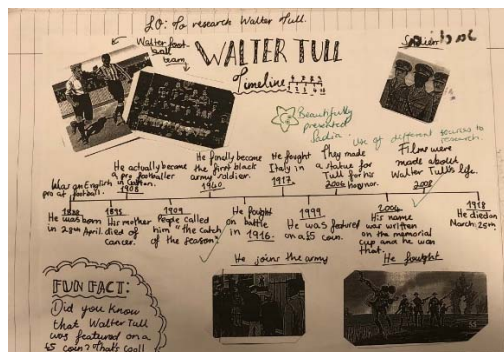 LO: To research Walter Tull.
Walter foot-
ball
team
WALTER TULL
Timeline
Soldier
Beautifully
presented
Sadia.
Use of different sources to
research.
Was an English
pro at football.
He actually became
a pro footballer
in
1908
He finally became
the first black
army soldier.
1940
He fought
Italy in
1917
They made
a statue for
Tull for his
2004 honor
Films were
made about
Walter Tull's life.
2008
He was born
in 28th April
1895
His mother
died of
cancer.
1909
People called
him "the catch
of the season"
He fought
on battle
in 1916.
1999
He was featured
on a £5 coin.
2004
His name
was written
on the memorial
cup and he won
that.
1918
He died on
March 25th
He joins the army
He fought
FUN FACT:
Did you know
that Walter Tull
was featured on a
£5 coin? That's cool!